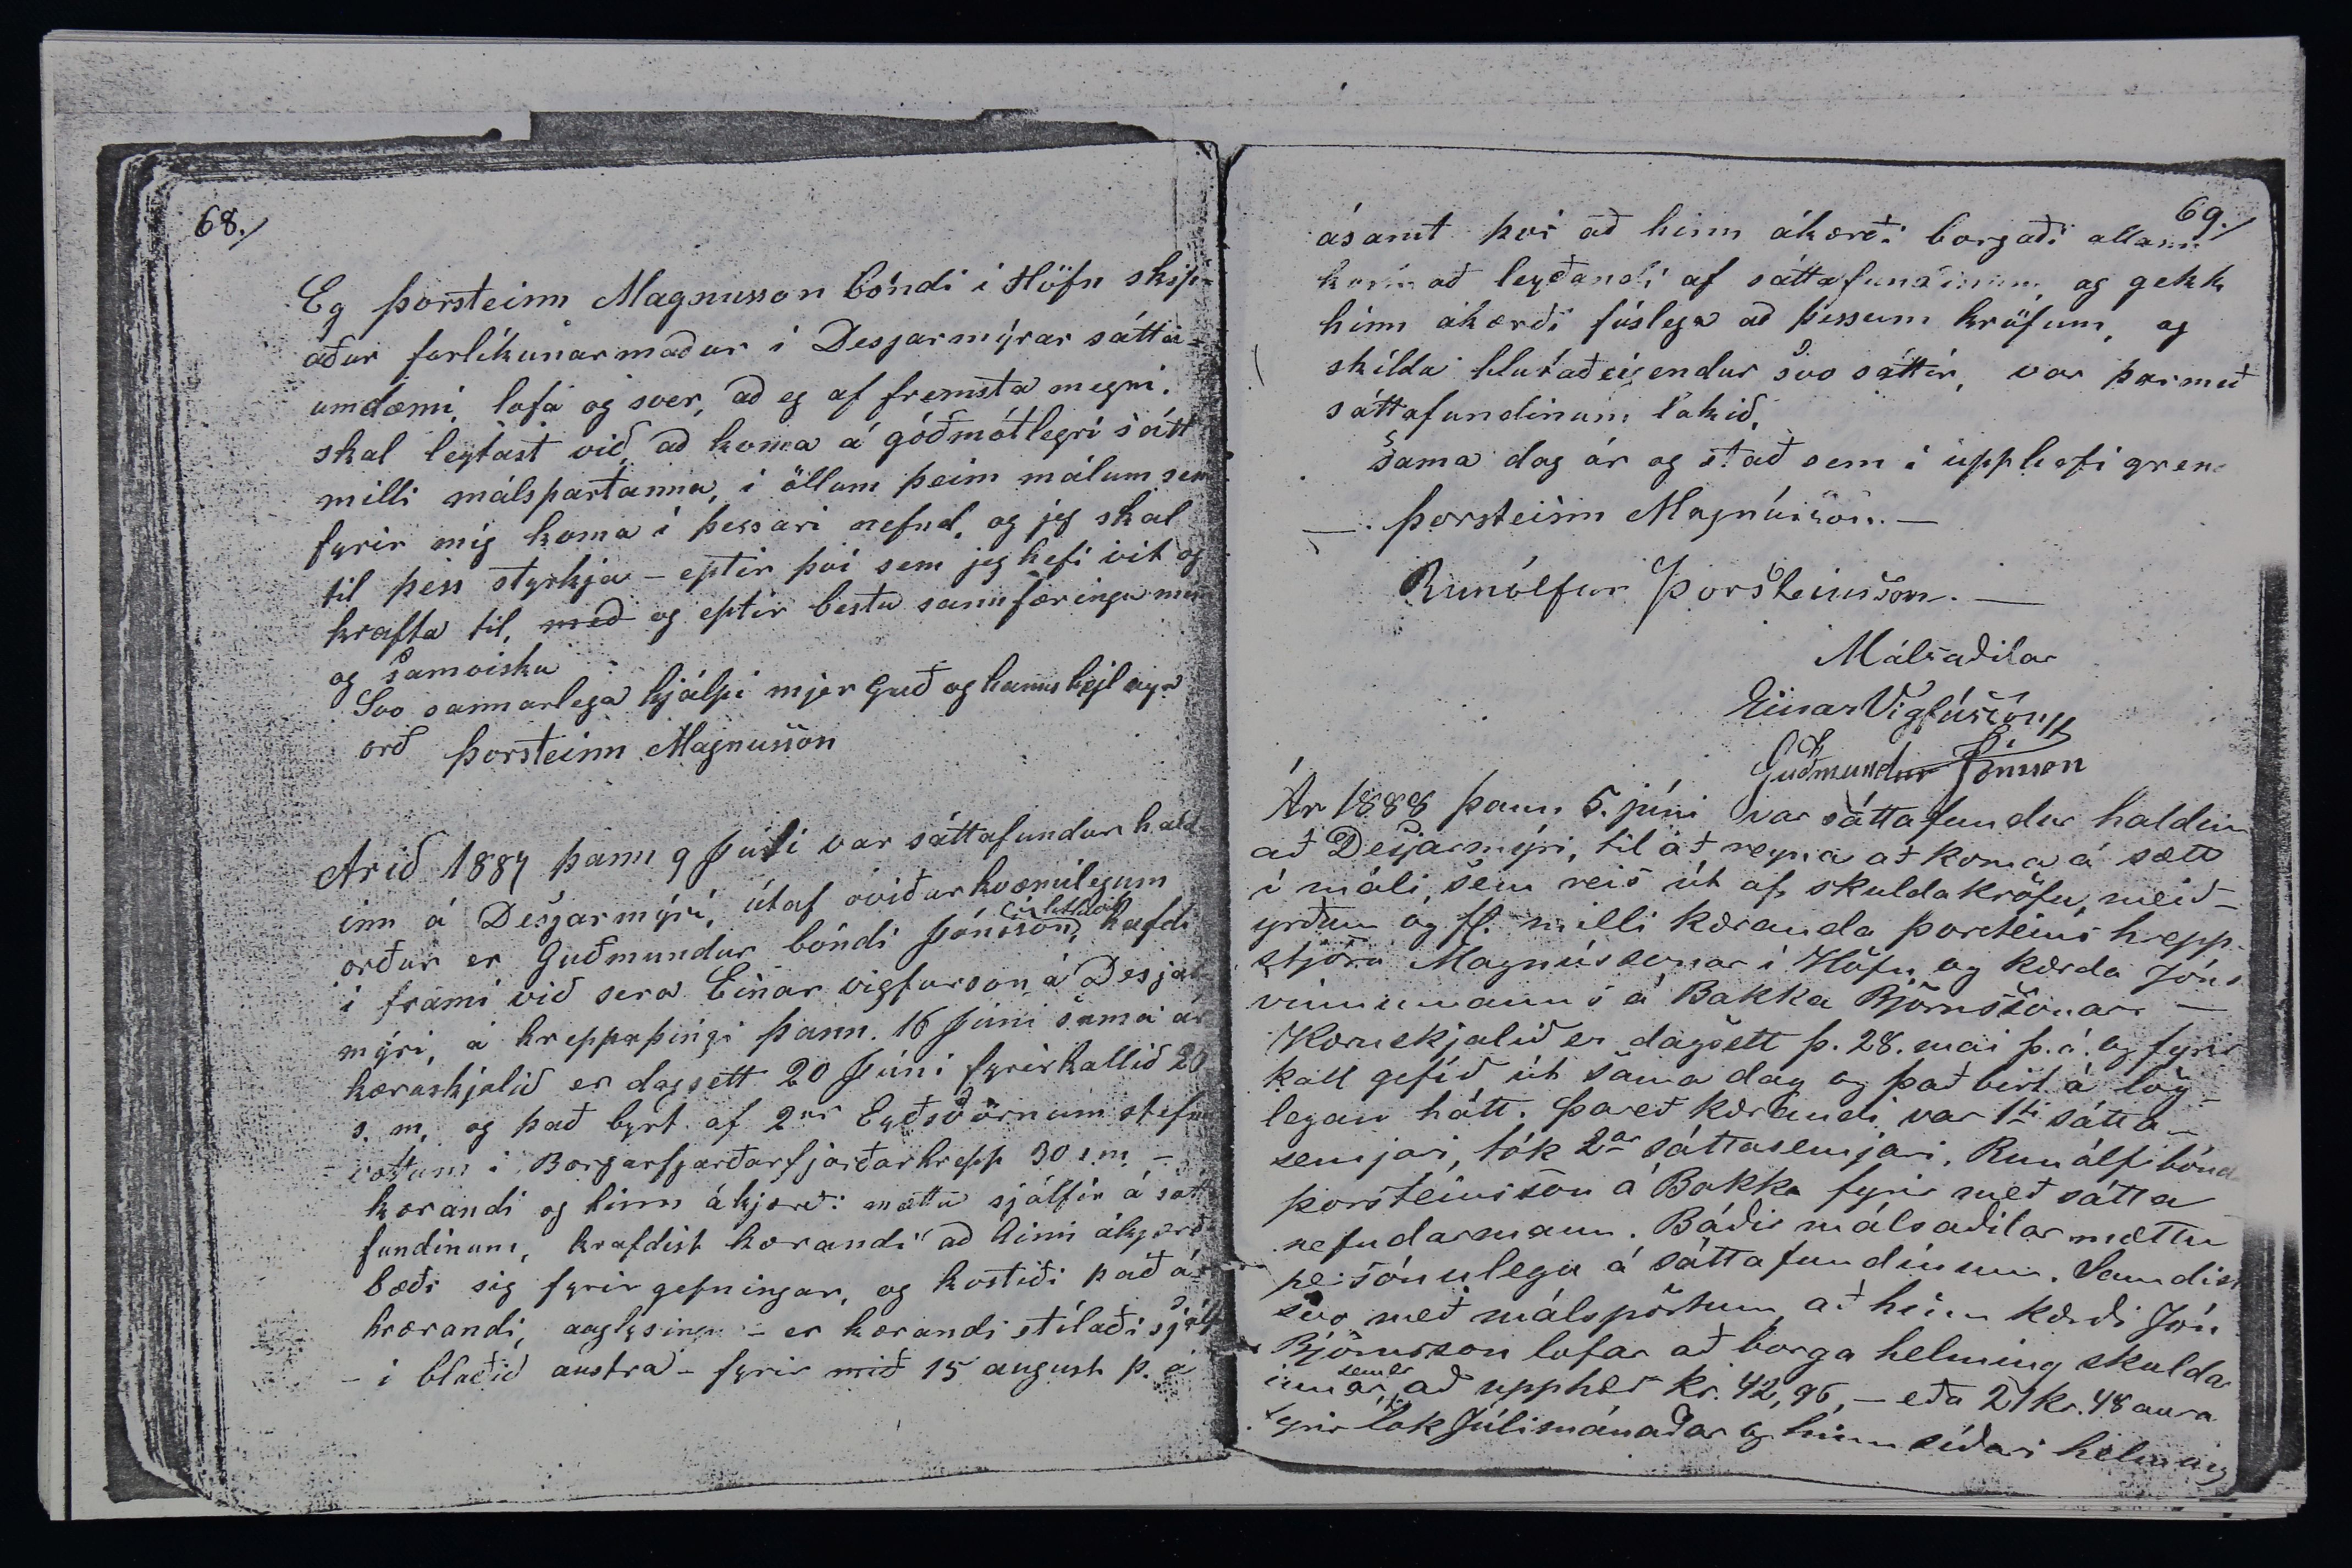 68./
Eg Þorsteinn Magnusson bóndi i Höfn skip-
aður forlíkunarmaður i Desjarmýrar sátta-
umdæmi, lofa og sver, að eg af fremsta megni
skal leytast við, að koma á góðmótlegri sátt
milli málspartanna, i öllum þeim málum sem
fyrir mig koma i þessari nefnd, og jeg skal
til þess styrkja - eptir því sem jeg hefi vit og
krafta til, með og eptir bestu sannfæringu minni
og samvisku
Svo sannarlega hjálpi mjer Guð og hanns heilaga
orð Þorsteinn Magnusson
Arið 1887 þann 9 Júli var sáttafundur hald-
inn á Desjarmýri, útaf óviðurkvæmilegum
orðum er Guðmundur bóndi Jónsson, hafði
i frami við sera Einar vigfusson á Desjar-
mýri, á hreppaþingi þann. 16 Júni sama ár
kæruskjalið er dagsett 20 Júni fyrirkallið 20
s. m. og það byrt af 2ur Eyðsvörnum stefnu
vottum i Borgarfjarðarhrepp 30 s.m. -
kærandi og hinn ákjærði mættu sjálfir á satta
fundinum, krafdist kærandi að hinn ákjærði
bæði sig fyrirgefningar, og kostiði það á
krærandi, auglýsingu - er kærandi stílaði sjálf
- i blaðið austra - fyrir mið 15 august þ. á
69./
ásamt því að hinn ákærði borgaði allann
kosnað leyðandi af sáttafundinum og gekk
hinn ákærði fúslega að þessum kröfum, og
skildu hlutaðeigendur svo sáttir, var þarmeð
sáttafundinum lokið.
Sama dag ár og stað sem i upphafi gren
—. Þorsteinn Magnússon. —
Runólfur Þorsteinsson. —
Málsaðilar
Einar Vigfússon
Guðmundur Jónsson
Ár 1888 þann 5. júni var sáttafundur haldinn
að Desjarmýri, til að reyna að koma á sætt
i máli, sem reis út af skuldakröfu, meið-
yrðum og fl. milli kæranda Þorsteins hrepp-
stjóra Magnússonar i Höfn og kærða Jóns
vinnumanns á Bakka Björnssonar —
Kæruskjalið er dagsett þ. 28. mai þ.á. og fyrir
kall gefið út sama dag og það birt á lög-
legan hátt. Þareð kærandi var 1ti sátta-
semjari, tók 2ar sáttasemjari, Runólf bónda
Þorsteinsson á Bakka fyrir með sátta
nefndarmann. Báðir málsaðilar mættu
persónulega á sáttafundinum. Samdist
svo með málspörtum, að hinn kærði Jón
Björnsson lofar að borga helming skulda
innar, sem er að upphæð kr. 42,96, — eða 21 kr. 48 aura
fyrir lok Júlimánaðar og hinn síðari helming